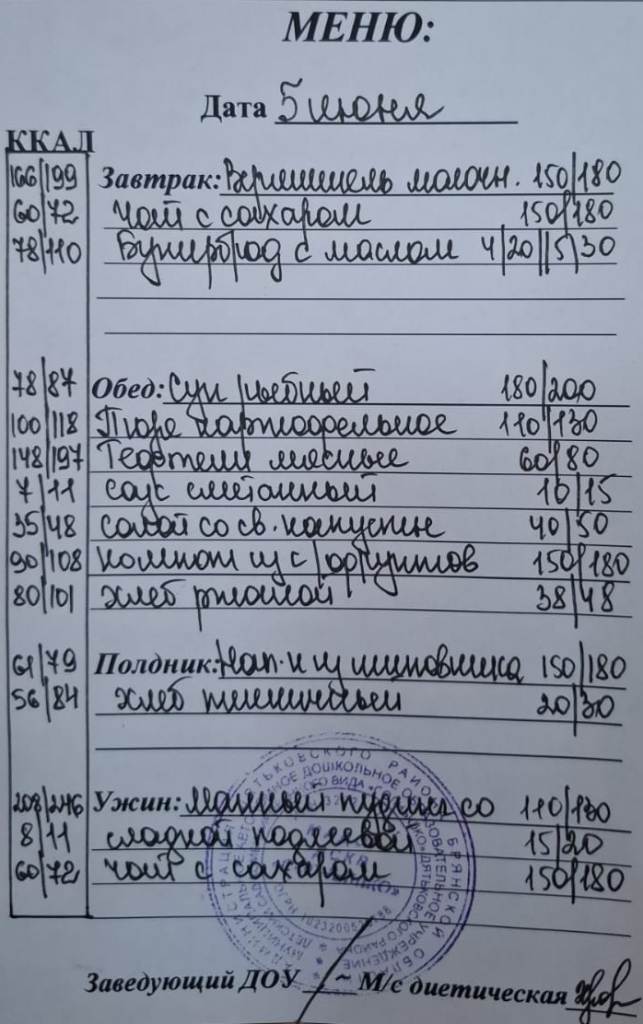 МЕНЮ:
Дата 5 июня
ККАЛ
166/199 Завтрак: Вермишель молочн. 150/180
60/72 Чай с сахаром 150/180
78/110 Бутерброд с маслом 4/20//5/30
78/87 Обед: Суп рыбный 180/200
100/118 Пюре картофельное 110/130
148/197 Тефтели мясные 60/80
7/11 соус сметанный 10/15
35/48 салат со св. капусты 40/50
90/108 компот из с/фруктов 150/180
80/101 хлеб ржаной 38/48
61/79 Полдник: Нап-к из шиповника 150/180
56/84 хлеб пшеничный 20/30
208/246 Ужин: Манный пудинг со 110/130
8/11 сладкой подливой 15/20
60/72 Чай с сахаром 150/180
Заведующий ДОУ М/с диетическая